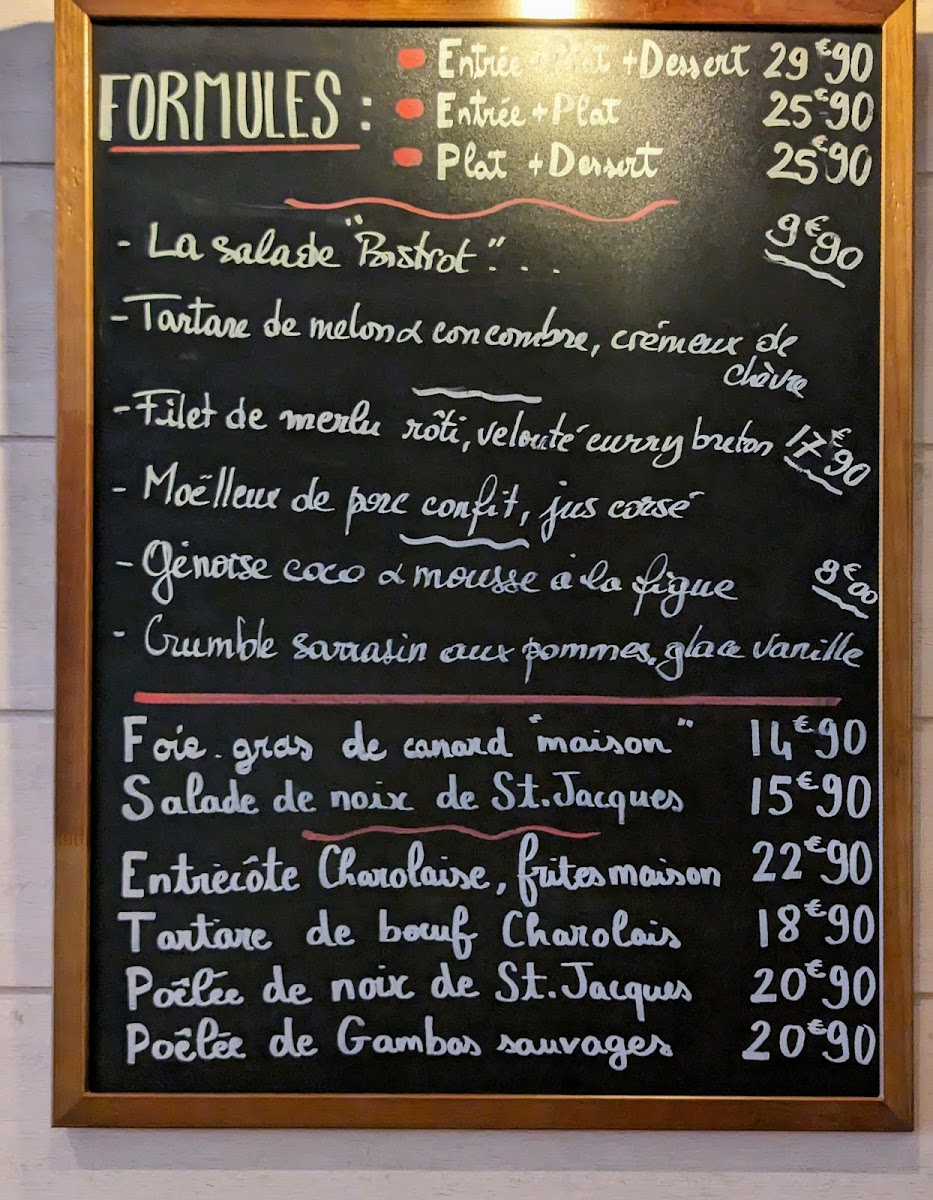 FORMULES :
Entrée + Plat + Dessert 29€90
Entrée + Plat 25€90
Plat + Dessert 25€90
- La salade "Bistrot"... 9€90
- Tartare de melon & concombre, crémeux de
chèvre
- Filet de merlu rôti, velouté curry breton 17€90
- Moëlleux de porc confit, jus corsé
- Génoise coco & mousse à la figue 8€00
- Crumble sarrasin aux pommes, glace vanille
Foie-gras de canard "maison" 14€90
Salade de noix de St.Jacques 15€90
Entrecôte Charolaise, frites maison 22€90
Tartare de bœuf Charolais 18€90
Poêlée de noix de St.Jacques 20€90
Poêlée de Gambas sauvages 20€90